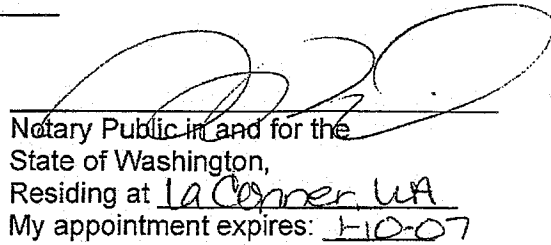 Notary Public in and for the
State of Washington,
Residing at La Conner, WA
My appointment expires: 1-10-07